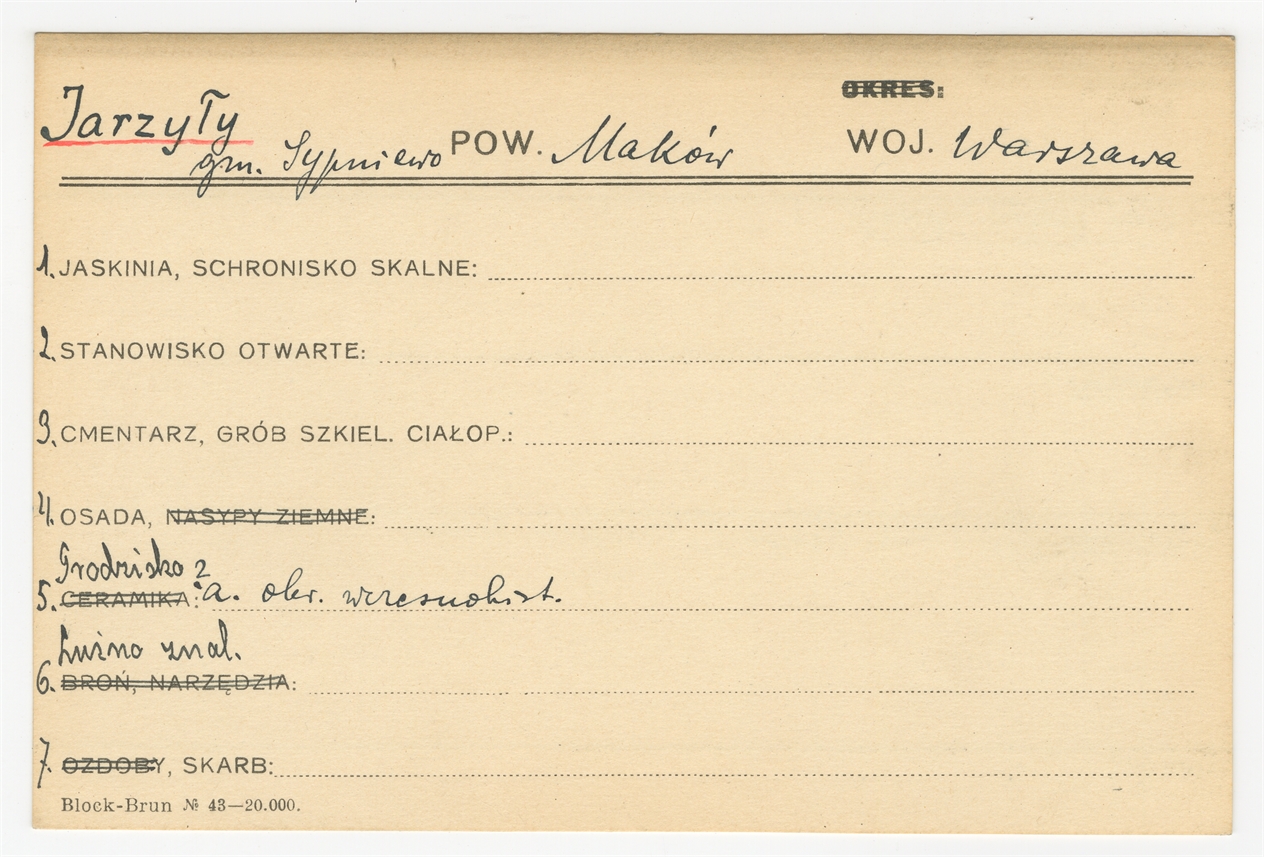 OKRES:
Jarzyły
gm. Sypniewo POW. Maków WOJ. Warszawa
1. JASKINIA, SCHRONISKO SKALNE:
2. STANOWISKO OTWARTE:
3. CMENTARZ, GRÓB SZKIEL. CIAŁOP.:
4. OSADA, NASYPY ZIEMNE:
Grodzisko z
5. CERAMIKA: a. okr. wczesnohist.
Luźno znal.
6. BROŃ, NARZĘDZIA:
7. OZDOBY, SKARB:
Block-Brun № 43—20.000.